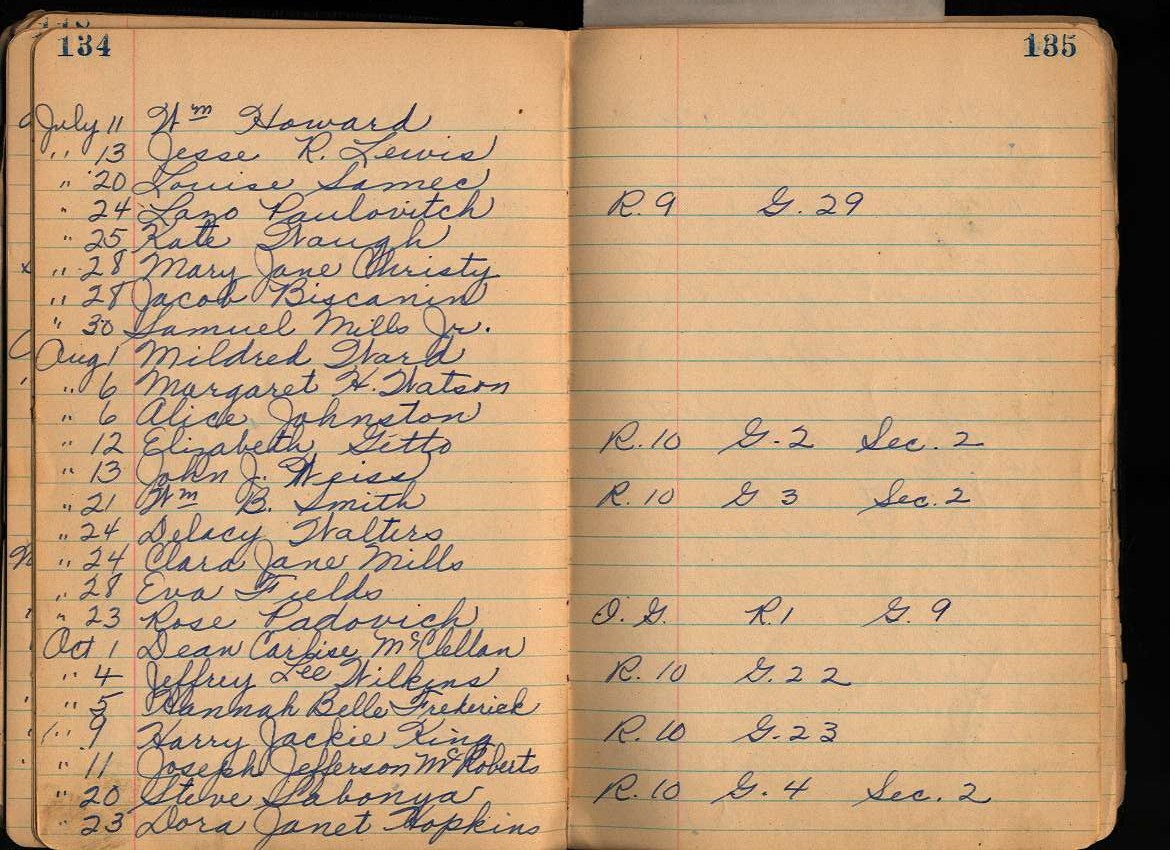 134
135
July 11 Wm Howard
" 13 Jesse R. Lewis
" 20 Louise Samec
" 24 Lazo Paulovitch R. 9 G. 29
" 25 Kate Waugh
x " 28 Mary Jane Christy
" 28 Jacob Biscanin
" 30 Samuel Mills Jr.
Aug 1 Mildred Ward
" 6 Margaret H. Watson
" 6 Alice Johnston
" 12 Elizabeth Gitto R. 10 G. 2 Sec. 2
" 13 John J. Weiss
" 21 Wm B. Smith R. 10 G 3 Sec. 2
" 24 Delacy Walters
" 24 Clara Jane Mills
" 28 Eva Fields
" 23 Rose Padovich O. G. R. 1 G. 9
Oct 1 Dean Carlise McClellan
" 4 Jeffrey Lee Wilkins R. 10 G. 22
" 5 Hannah Belle Frederick
" 9 Harry Jackie King R. 10 G. 23
" 11 Joseph Jefferson McRoberts
" 20 Steve Sabonya R. 10 G. 4 Sec. 2
" 23 Dora Janet Hopkins